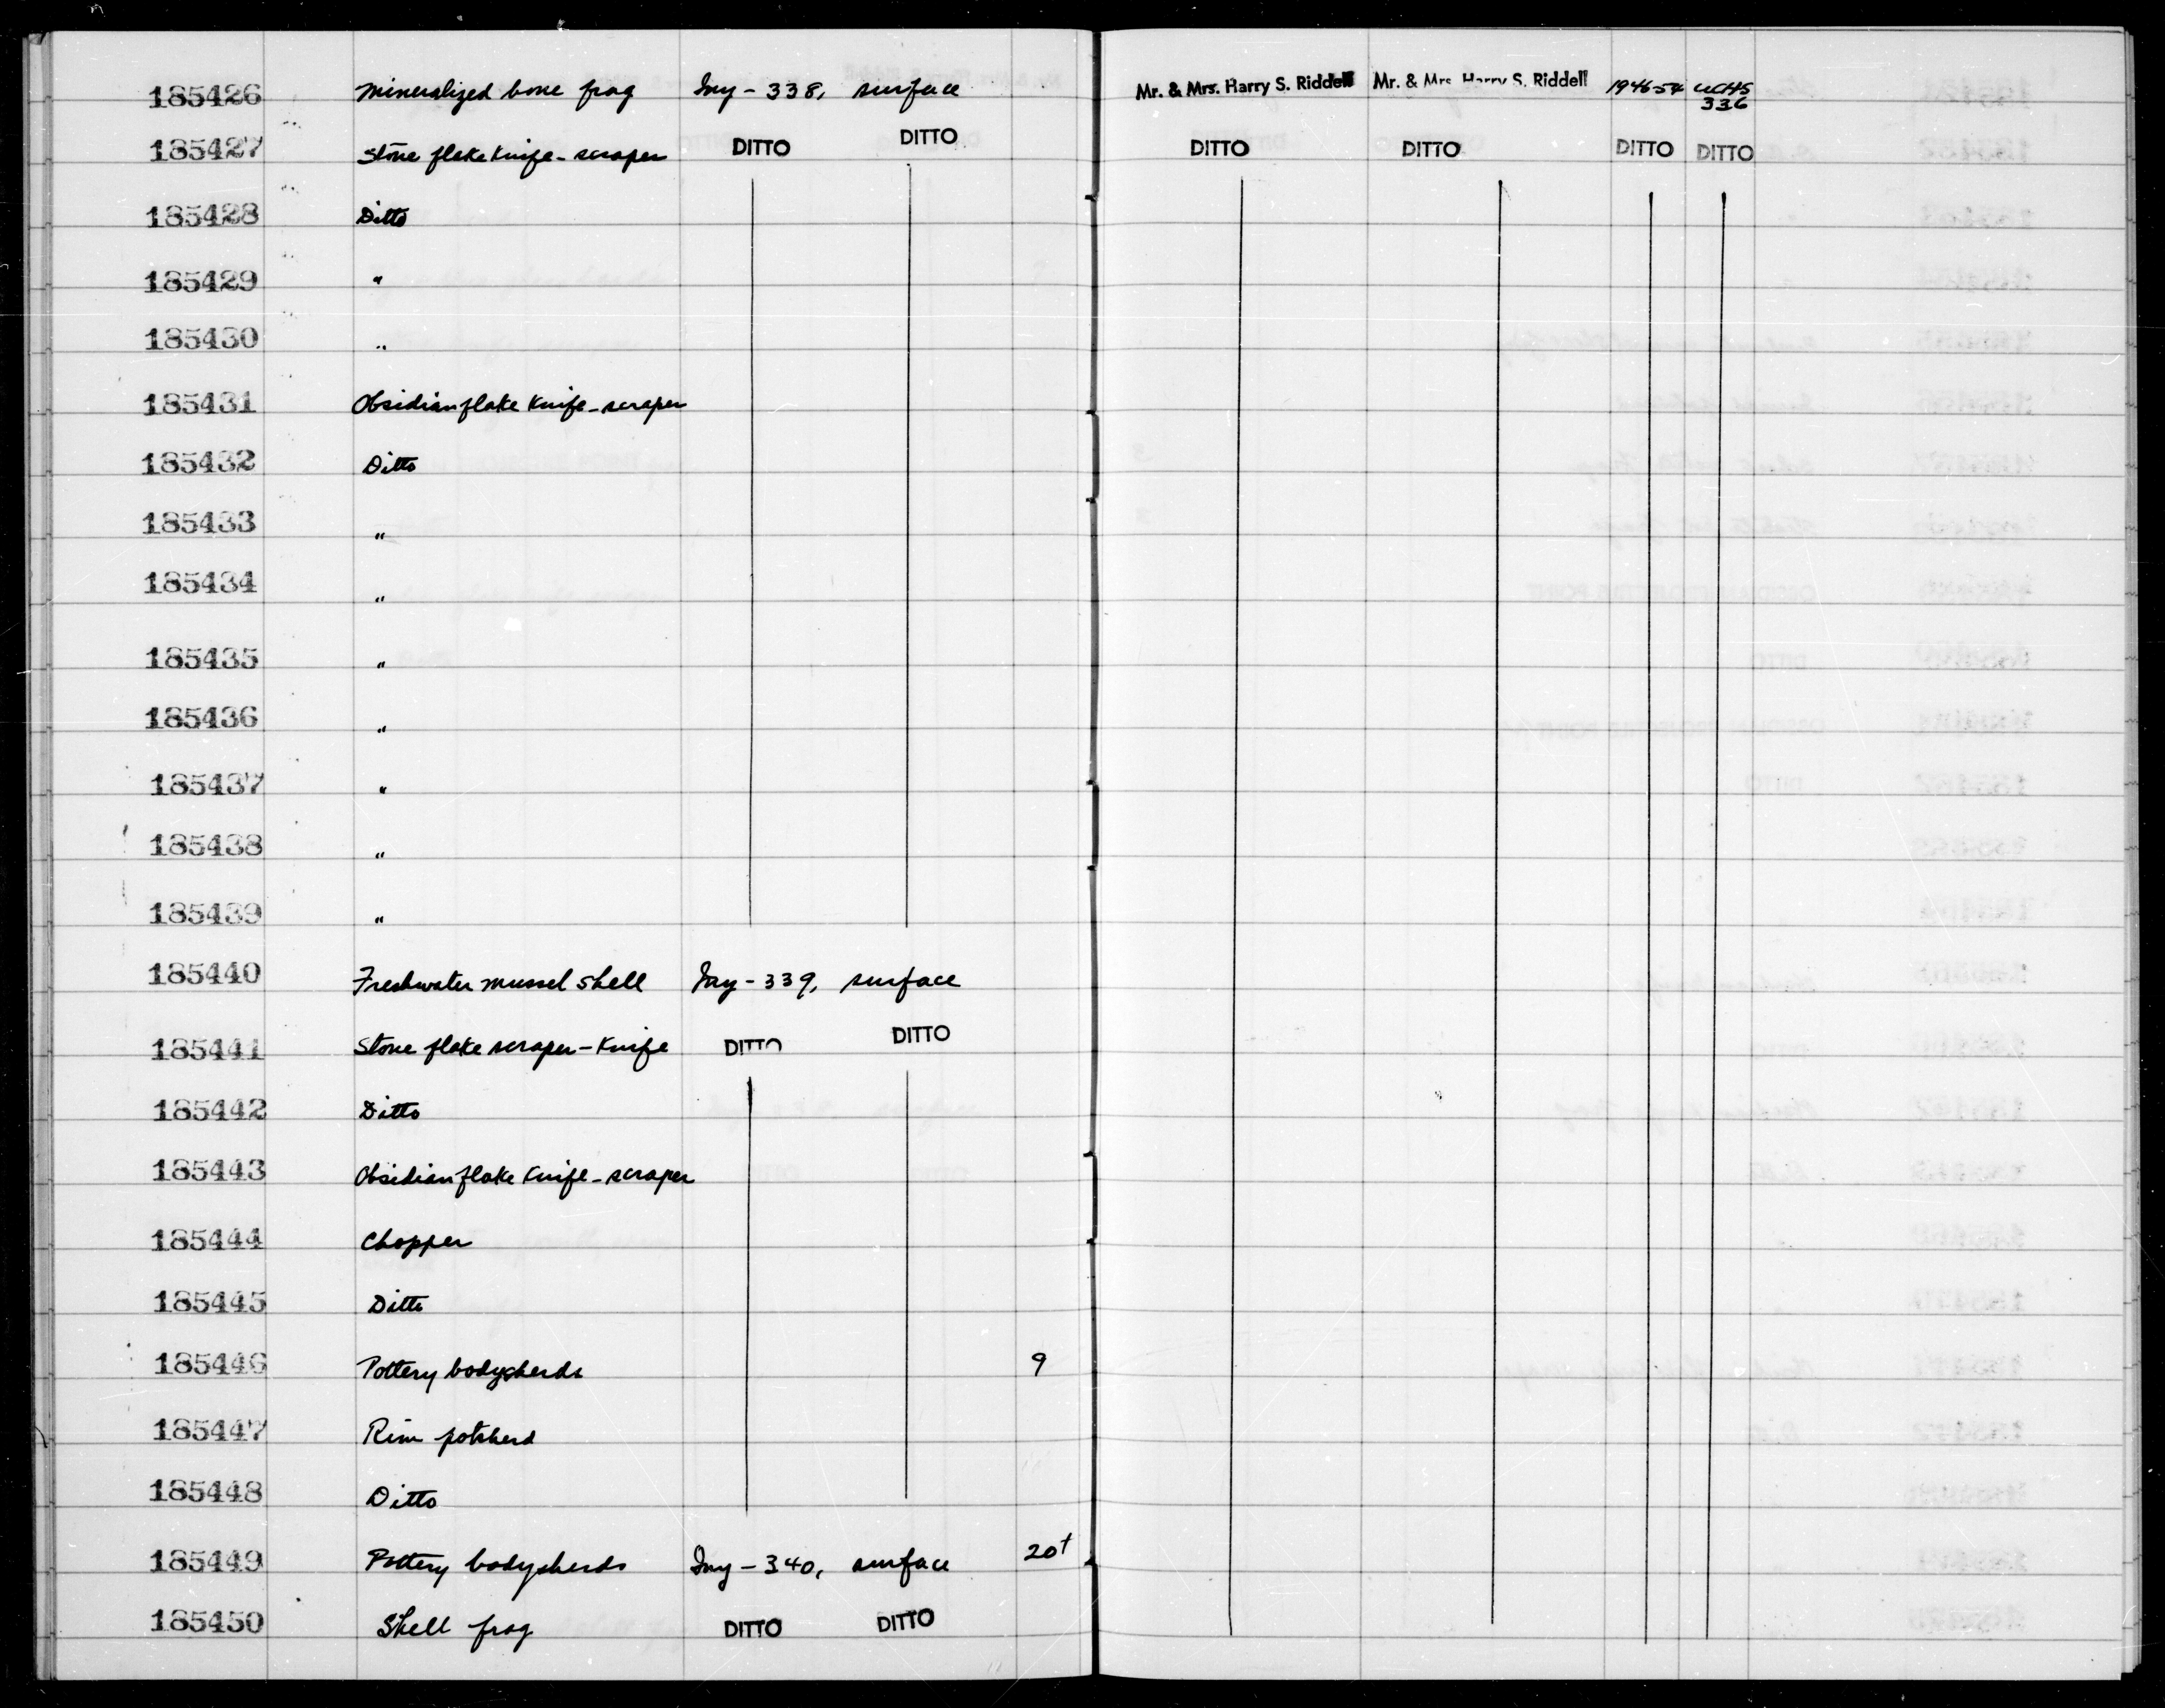 185426 Mineralized bone frag Iny - 338, surface Mr. & Mrs. Harry S. Riddell Mr. & Mrs. Harry S. Riddell 1946-54 UCAS 336
185427 Stone flake knife - scraper DITTO DITTO DITTO DITTO DITTO DITTO
185428 Ditto
185429 "
185430 "
185431 Obsidian flake knife - scraper
185432 Ditto
185433 "
185434 "
185435 "
185436 "
185437 "
185438 "
185439 "
185440 Freshwater mussel shell Iny - 339, surface
185441 Stone flake scraper - knife DITTO DITTO
185442 Ditto
185443 Obsidian flake knife - scraper
185444 Chopper
185445 Ditto
185446 Pottery bodysherds 9
185447 Rim potsherd
185448 Ditto
185449 Pottery bodysherds Iny - 340, surface 20+
185450 Shell frag DITTO DITTO